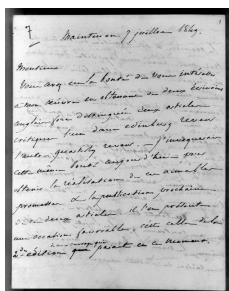 7
Maintenon 7 juillet 1849.
Monsieur
Vous avez eu la bonté de vous intéresser
à mon œuvre en obtenant de deux écrivains
anglais fort distingués deux articles
critiques l'un dans edinburg review
l'autre quarterly review. —
cette même bonté aujourd'hui pour
la réalisation de ces aimables
promesses et la publication prochaine
de ces deux articles
une occasion favorable, cette celle de la
2de édition qui paraît en ce moment,